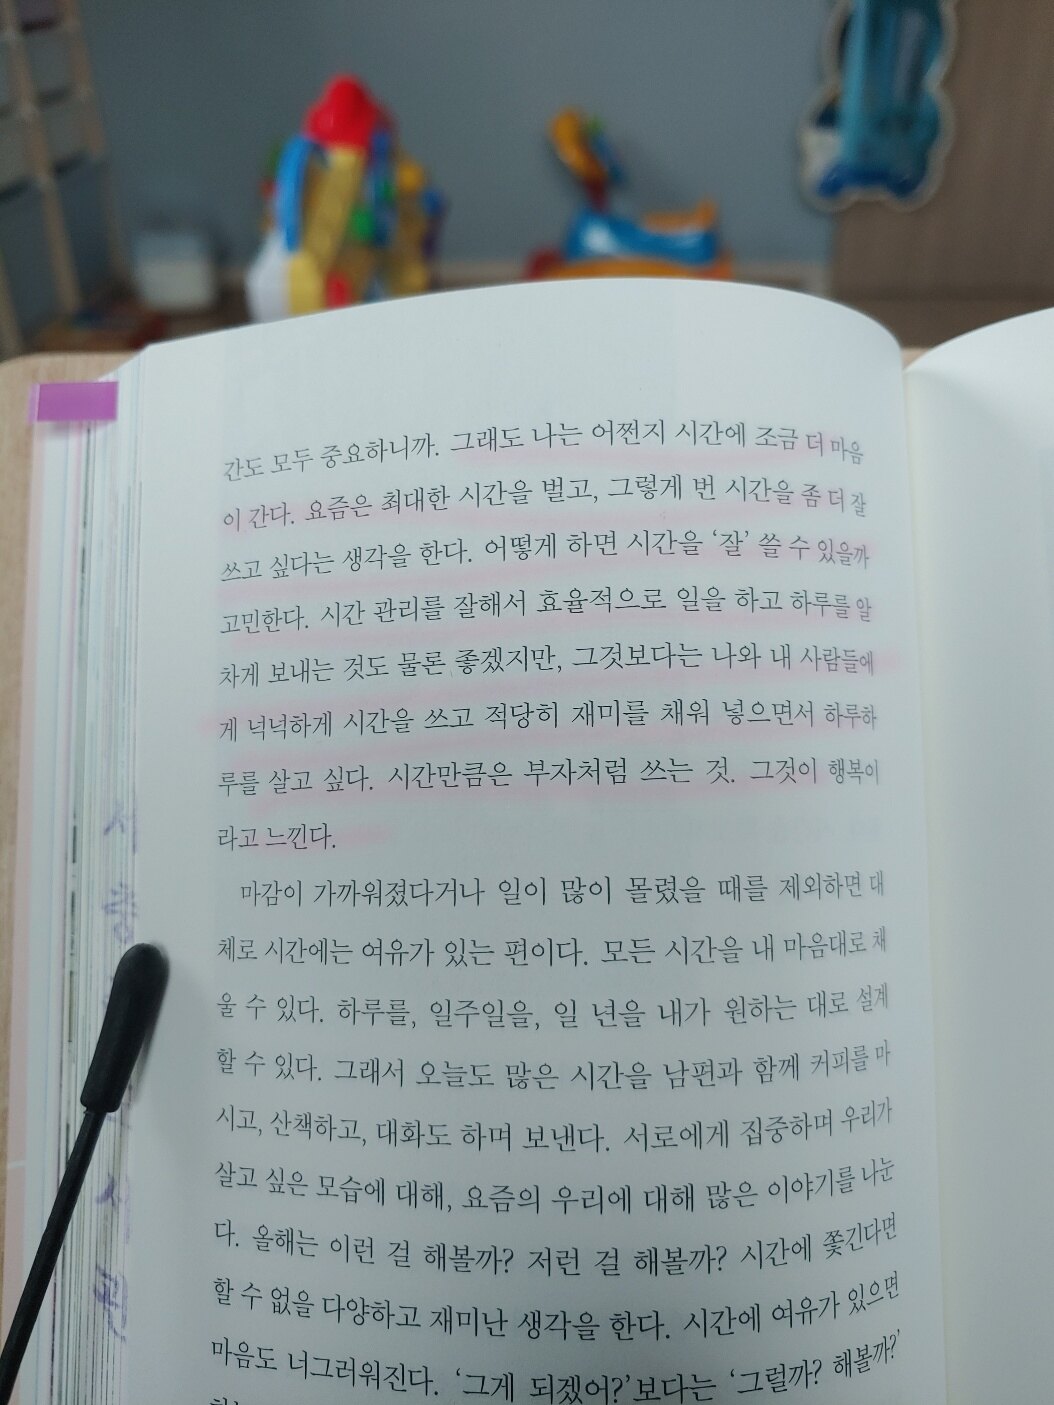 간도 모두 중요하니까. 그래도 나는 어쩐지 시간에 조금 더 마음
이 간다. 요즘은 최대한 시간을 벌고, 그렇게 번 시간을 좀 더 잘
쓰고 싶다는 생각을 한다. 어떻게 하면 시간을 ‘잘’ 쓸 수 있을까
고민한다. 시간 관리를 잘해서 효율적으로 일을 하고 하루를 알
차게 보내는 것도 물론 좋겠지만, 그것보다는 나와 내 사람들에
게 넉넉하게 시간을 쓰고 적당히 재미를 채워 넣으면서 하루하
루를 살고 싶다. 시간만큼은 부자처럼 쓰는 것. 그것이 행복이
라고 느낀다.
마감이 가까워졌다거나 일이 많이 몰렸을 때를 제외하면 대
체로 시간에는 여유가 있는 편이다. 모든 시간을 내 마음대로 채
울 수 있다. 하루를, 일주일을, 일 년을 내가 원하는 대로 설계
할 수 있다. 그래서 오늘도 많은 시간을 남편과 함께 커피를 마
시고, 산책하고, 대화도 하며 보낸다. 서로에게 집중하며 우리가
살고 싶은 모습에 대해, 요즘의 우리에 대해 많은 이야기를 나눈
다. 올해는 이런 걸 해볼까? 저런 걸 해볼까? 시간에 쫓긴다면
할 수 없을 다양하고 재미난 생각을 한다. 시간에 여유가 있으면
마음도 너그러워진다. ‘그게 되겠어?’보다는 ‘그럴까? 해볼까?’